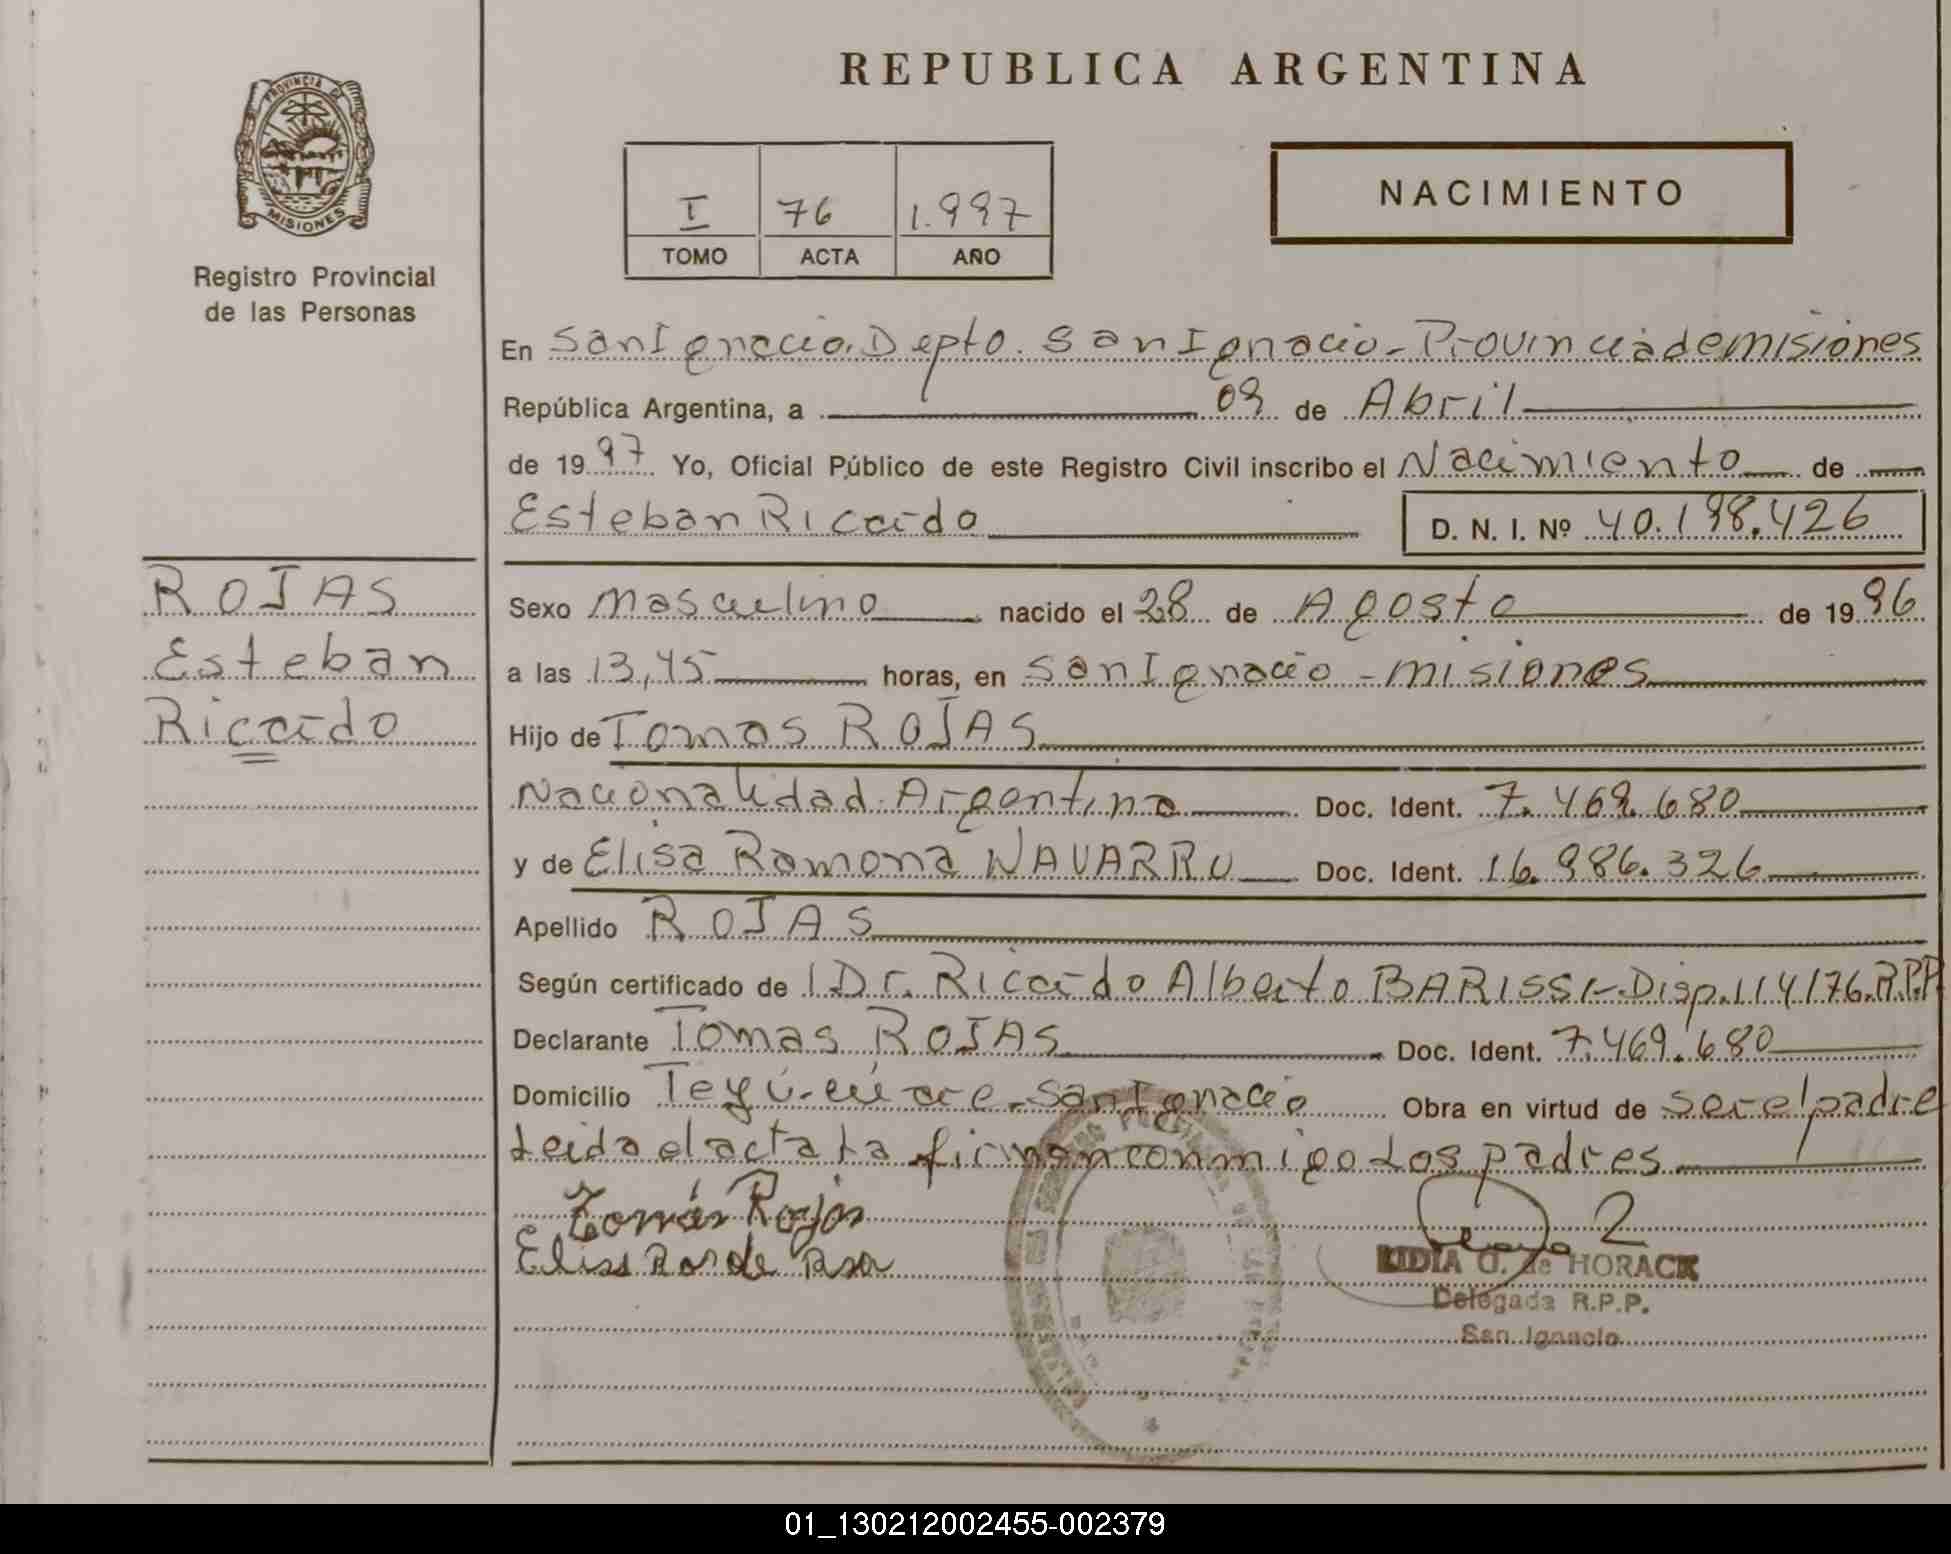 REPUBLICA ARGENTINA
PROVINCIA DE
MISIONES
Registro Provincial
de las Personas
I 76 1.997
TOMO ACTA AÑO
NACIMIENTO
En San Ignacio. Depto. San Ignacio - Provincia de misiones
República Argentina, a 09 de Abril
de 1997 Yo, Oficial Público de este Registro Civil inscribo el Nacimiento de
Esteban Ricardo D. N. I. Nº 40.198.426
ROJAS
Esteban
Ricardo
Sexo masculino nacido el 28 de Agosto de 1996
a las 13,45 horas, en San Ignacio - misiones
Hijo de Tomas ROJAS
Nacionalidad Argentina Doc. Ident. 7.469.680
y de Elisa Ramona NAVARRO Doc. Ident. 16.986.326
Apellido ROJAS
Según certificado de l Dr. Ricardo Alberto BARISSI - Disp. 114/76. R.P.P.
Declarante Tomas ROJAS Doc. Ident. 7.469.680
Domicilio Teyú-cuare - San Ignacio Obra en virtud de ser el padre
Leida el acta la firman conmigo Los padres
Tomás Rojas
LIDIA O. de HORACK
Delegada R.P.P.
San Ignacio
01_130212002455-002379